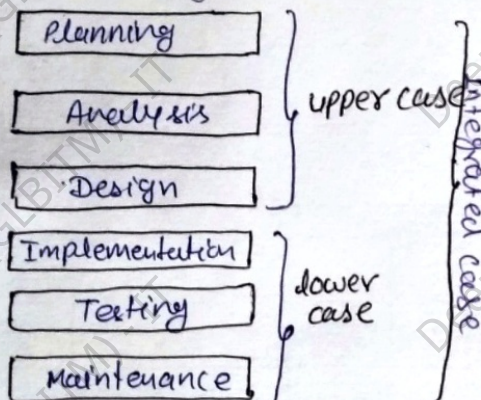 Planning
Analysis
Design
upper case
Implementation
Testing
Maintenance
lower
case
Integrated case
GLBITM) - IT